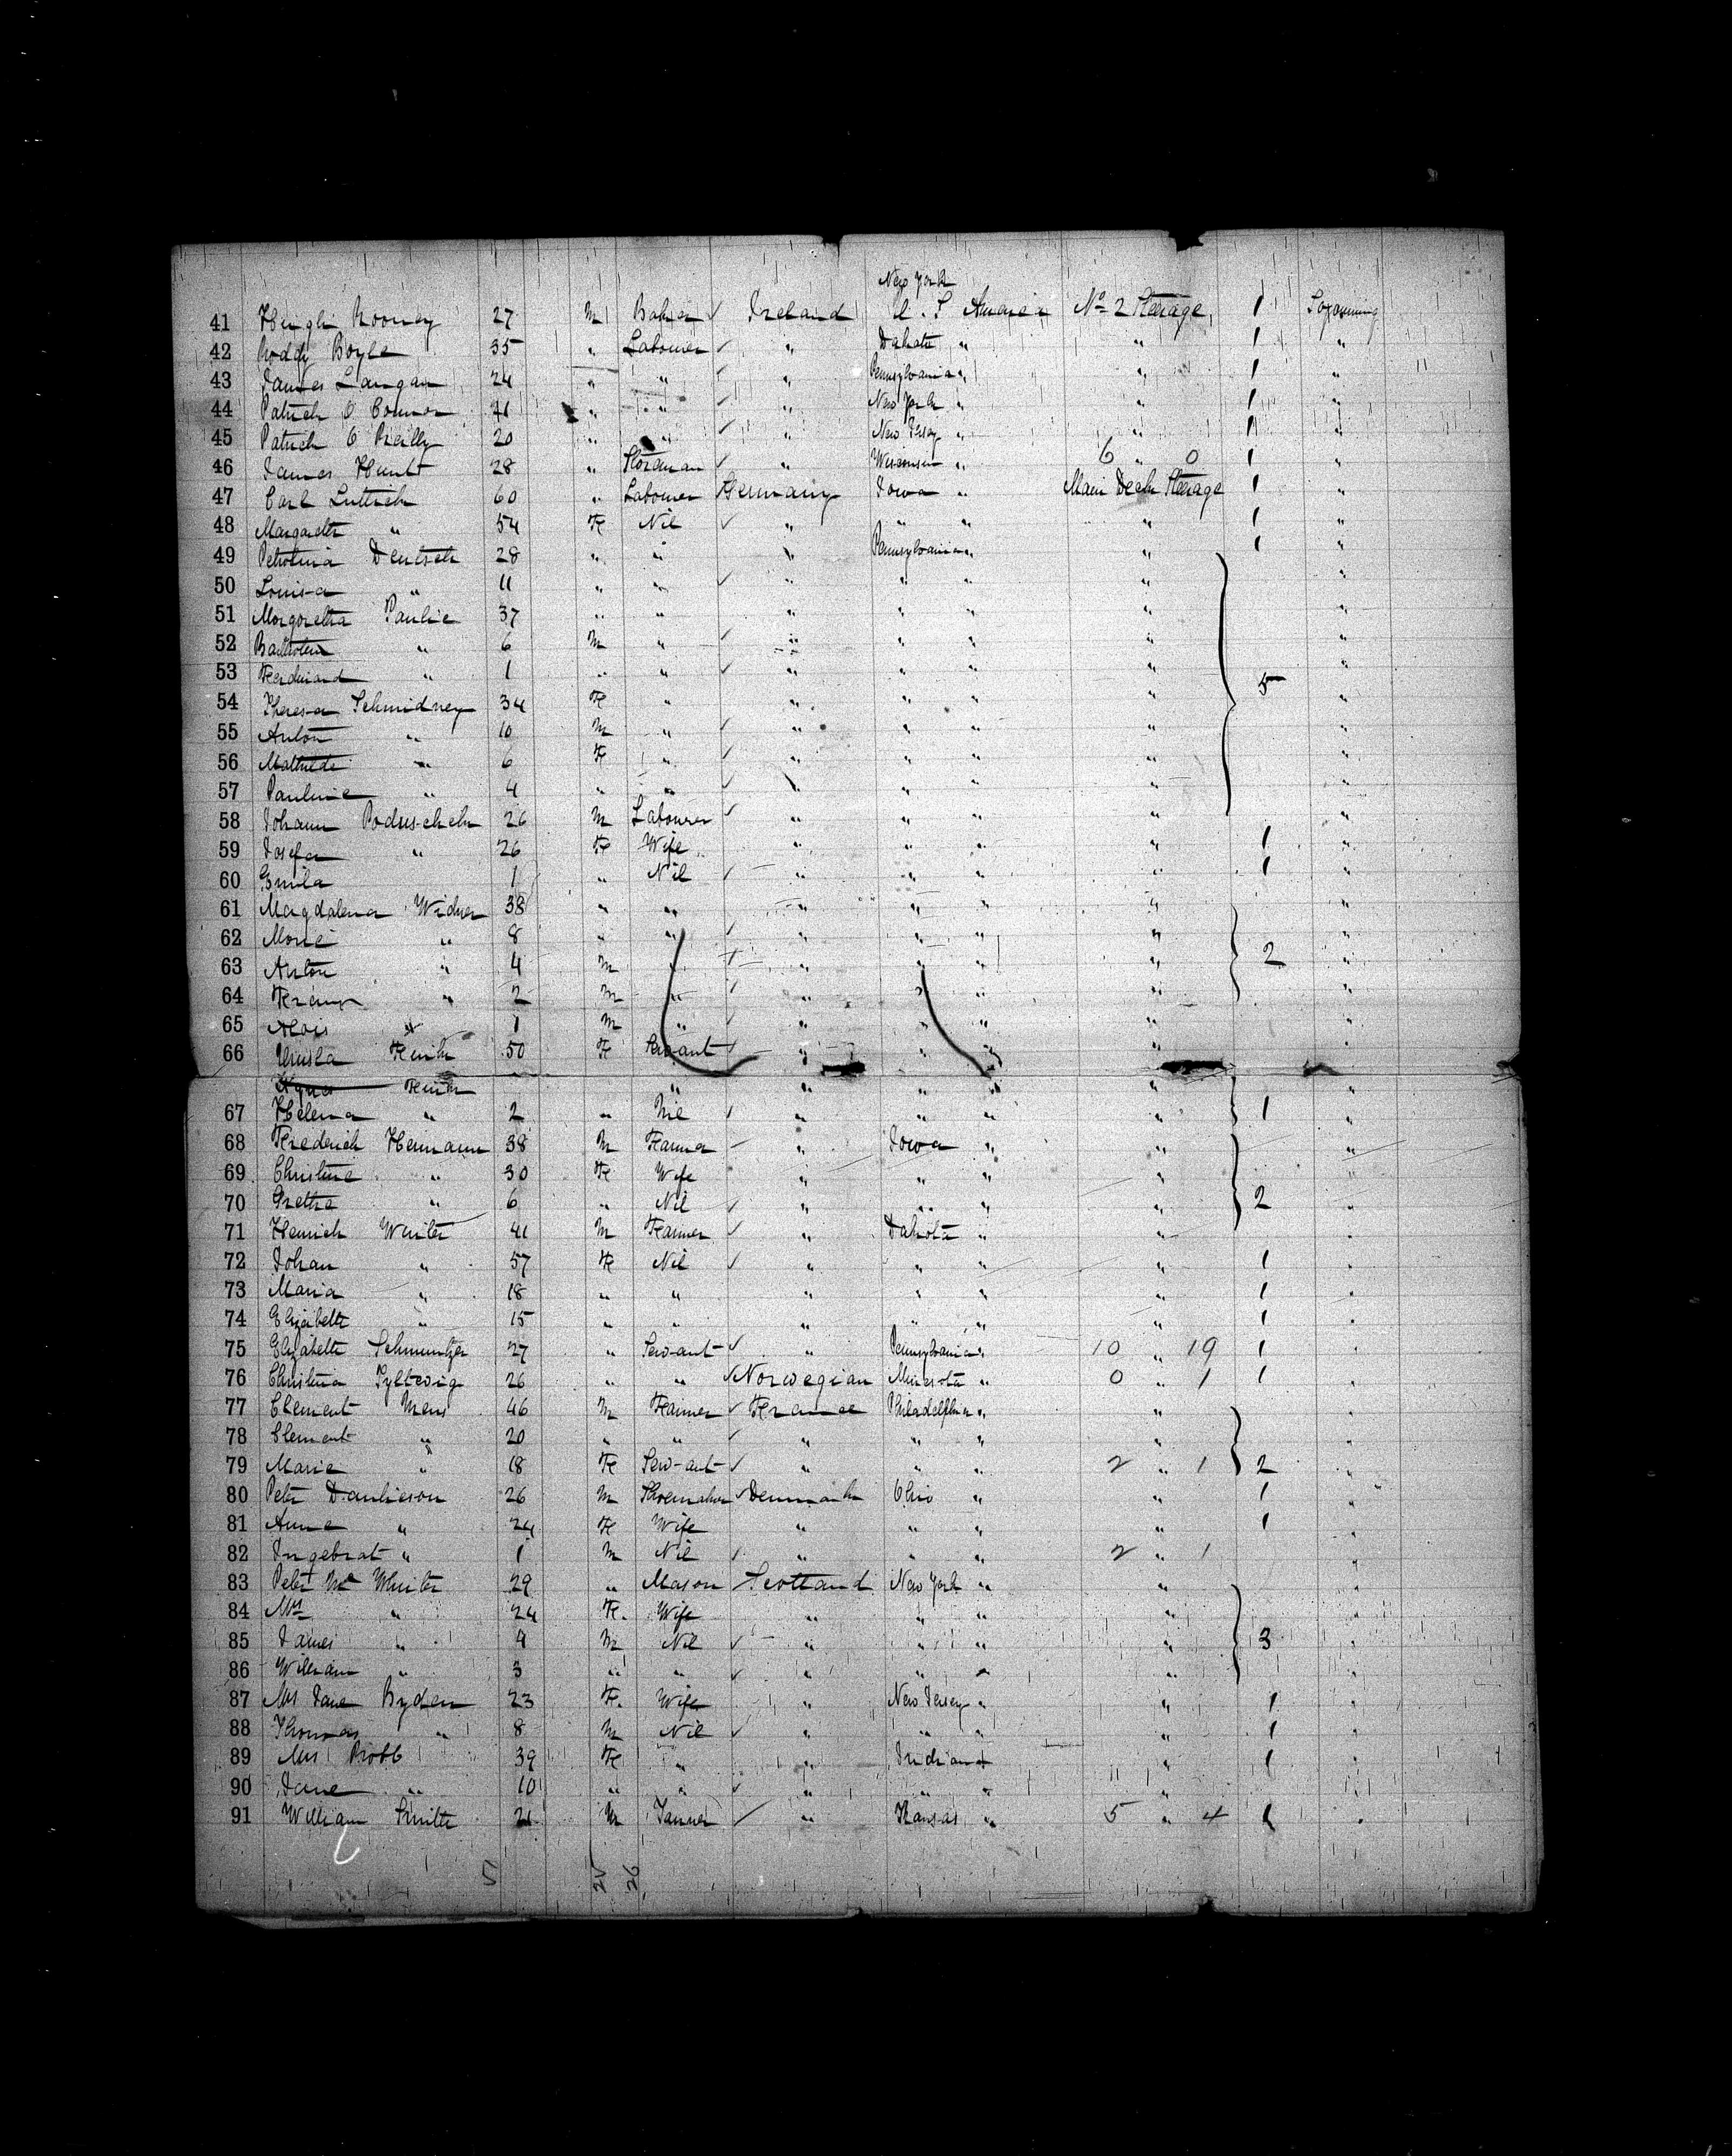 New York
41 Hugh Rooney 27 M Baker ✓ Ireland U.S. America No 2 Steerage 1 Sojourning
42 Roddy Boyle 35 " Labourer ✓ " Dakota " " 1 "
43 James Langan 24 " " ✓ " Pennsylvania " " 1 "
44 Patrick O Connor 41 " " ✓ " New York " " 1 "
45 Patrick O Reilly 20 " " ✓ " New Jersey " " 1 "
46 James Hunt 28 " Storeman ✓ " Wisconsin " 6 " 0 1 "
47 Carl Luttich 60 " Labourer Germany Iowa " Main Deck Steerage 1 "
48 Margareth " 54 F Nil ✓ " " " " 1 "
49 Petrolina Deutsch 28 " " " Pennsylvania " " 1 "
50 Louisa " 11 " " ✓ " " " " "
51 Margoretha Paulie 37 " " " " " " "
52 " 6 M " ✓ " " " " "
53 Ferdinand " 1 " " ✓ " " " " 5 "
54 Theresa Schmidney 34 F " " " " " "
55 Anton " 10 M " ✓ " " " " "
56 Mathilde " 6 F " ✓ " " " " "
57 Pauline " 4 " " ✓ " " " "
58 Johann 26 M Labourer ✓ " " " " "
59 Josefa " 26 F Wife " " " " 1 "
60 Emila 1 " Nil ✓ " " " " 1 "
61 Magdalena Widner 38 " " " " " " "
62 Marie " 8 " " ✓ " " " " "
63 Anton " 4 M " " " " " 2 "
64 Franz " 2 M " ✓ " " " " "
65 Alois " 1 M " ✓ " " " " "
66 Ursula 50 F Servant " " " " "
" " " " "
67 Helena " 2 " Nil " " " 1 "
68 Frederich Hermann 38 M Farmer " Iowa " " "
69 Christine " 30 F Wife " " " " "
70 Gretha " 6 " Nil ✓ " " " " 2 "
71 Henrich Winter 41 M Farmer ✓ " Dakota " " "
72 Johan " 57 F Nil ✓ " " " " 1 "
73 Maria " 18 " " " " " " 1 "
74 Elizabeth " 15 " " " " " " 1 "
75 Elizabeth Schmuntzer 27 " Servant ✓ " Pennsylvania " 10 " 19 1 "
76 Christina 26 " " ✓ Norwegian Minesota " 0 " 1 1 "
77 Clement Mens 46 M Farmer ✓ France Philadelphia " " "
78 Clement " 20 " " ✓ " " " " "
79 Marie " 18 F Servant ✓ " " " 2 " 1 2 "
80 Peter Danlieson 26 M Shoemaker ✓ Denmark Ohio " " 1 "
81 Anna " 24 F Wife " " " " 1
82 Ingebrat " 1 M Nil ✓ " " " 2 " 1 "
83 Peter Mc Whirter 29 " Mason Scotland New York " " "
84 Mrs " 24 F. Wife " " " " "
85 James " 4 M Nil ✓ " " " " 3 "
86 William " 3 " " ✓ " " " " "
87 Mrs Jane Byden 23 F. Wife " New Jersey " " 1 "
88 Thomas " 8 M Nil ✓ " " " " 1 "
89 Mrs Robb 39 F " " Indiana " 1 "
90 Jane " 10 " " ✓ " " " " "
91 William Smith 21 M Tanner ✓ " Kansas " 5 " 4 1 "
51 25 26